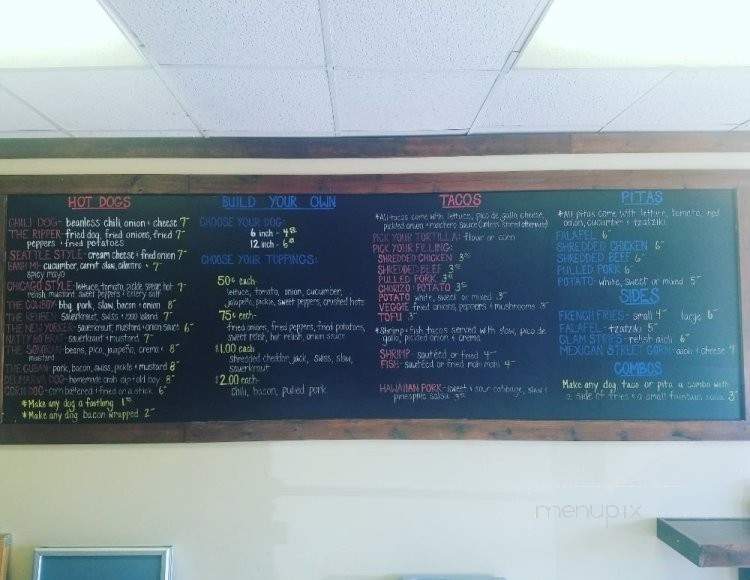 HOT DOGS
CHILI DOG- beanless chili, onion & cheese 7-
THE RIPPER- fried dog, fried onions, fried 7-
peppers & fried potatoes
SEATTLE STYLE- cream cheese & fried onion 7-
BANH MI- cucumber, carrot slaw, cilantro & 7-
spicy mayo
CHICAGO STYLE- lettuce, tomato, pickle spear, hot 7-
relish, mustard, sweet peppers & celery salt
THE COWBOY- bbq pork, slaw, bacon & onion 8-
THE REUBEN- sauerkraut, swiss & 1000 island 7-
THE NEW YORKER- sauerkraut, mustard & onion sauce 6-
NATTY BO BRAT- sauerkraut & mustard 7-
THE SONORAN- beans, pico, jalapeño, crema & 8-
mustard
THE CUBAN- pork, bacon, swiss, pickle & mustard 8-
DELMARVA DOG- homemade crab dip & old bay 8-
CORN DOG- corn battered & fried on a stick 6-
*Make any dog a footlong 1
*Make any dog bacon wrapped 2-
BUILD YOUR OWN
CHOOSE YOUR DOG:
6 inch - 4
12 inch - 6
CHOOSE YOUR TOPPINGS:
50¢ each-
lettuce, tomato, onion, cucumber,
jalapeño, pickle, sweet peppers, crushed hots
75¢ each-
fried onions, fried peppers, fried potatoes,
sweet relish, hot relish, onion sauce
$1.00 each-
shredded cheddar jack, swiss, slaw,
sauerkraut
$2.00 each-
chili, bacon, pulled pork
TACOS
*All tacos come with lettuce, pico de gallo, cheese,
pickled onion & ranchero sauce (unless stated otherwise)
PICK YOUR TORTILLA: flour or corn
PICK YOUR FILLING:
SHREDDED CHICKEN 3
SHREDDED BEEF 3
PULLED PORK 3
CHORIZO & POTATO 3
POTATO white, sweet or mixed 3
VEGGIE fried onions, peppers & mushrooms 3
TOFU 3
*Shrimp & fish tacos served with slaw, pico de
gallo, pickled onion & crema
SHRIMP- sautéed or fried 4-
FISH- sautéed or fried mahi mahi 4-
HAWAIIAN PORK- sweet & sour cabbage, slaw &
pineapple salsa 3
PITAS
*All pitas come with lettuce, tomato, red
onion, cucumber & tzatziki
FALAFEL 6-
SHREDDED CHICKEN 6-
SHREDDED BEEF 6-
PULLED PORK 6-
POTATO- white, sweet or mixed 5-
SIDES
FRENCH FRIES- small 4- large 6-
FALAFEL- tzatziki 5-
CLAM STRIPS- relish aioli 6-
MEXICAN STREET CORN- aioli & cheese 4-
COMBOS
Make any dog, taco or pita a combo with
a side of fries & a small fountain soda 3-
menupix